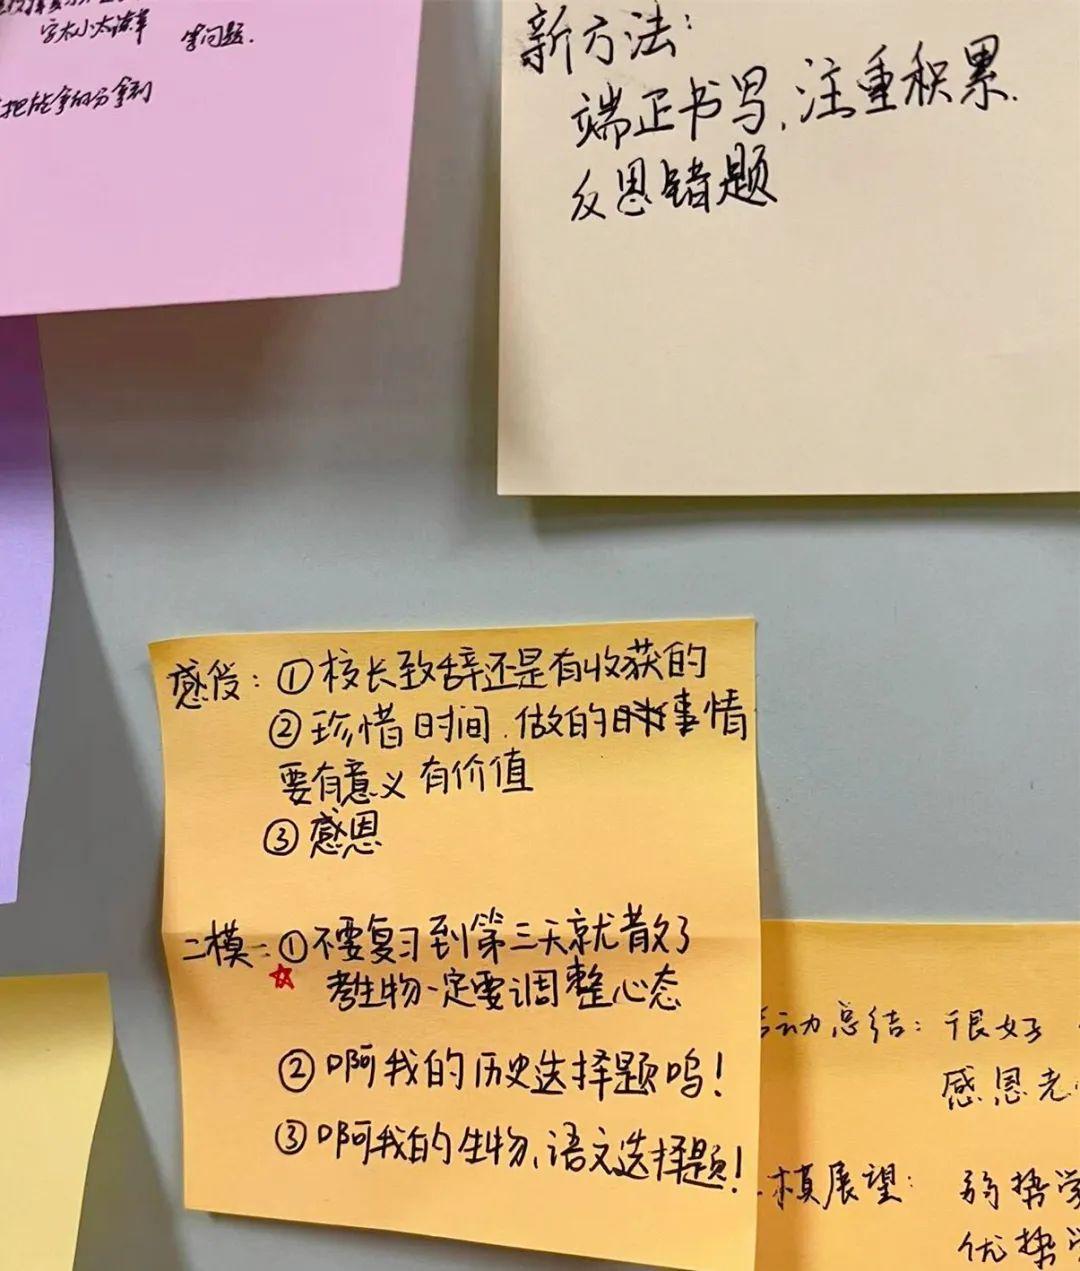 字太小太潦草 等问题.
把能拿的分拿到
新方法:
端正书写,注重积累.
反思错题
感受: ①校长致辞还是有收获的
②珍惜时间.做的事情
要有意义 有价值
③感恩
二模: ①不要复习到第三天就散了
☆ 考生物一定要调整心态
②啊我的历史选择题呜!
③啊我的生物、语文选择题!
动总结: 很好
感恩老
模展望: 弱势学
优势学